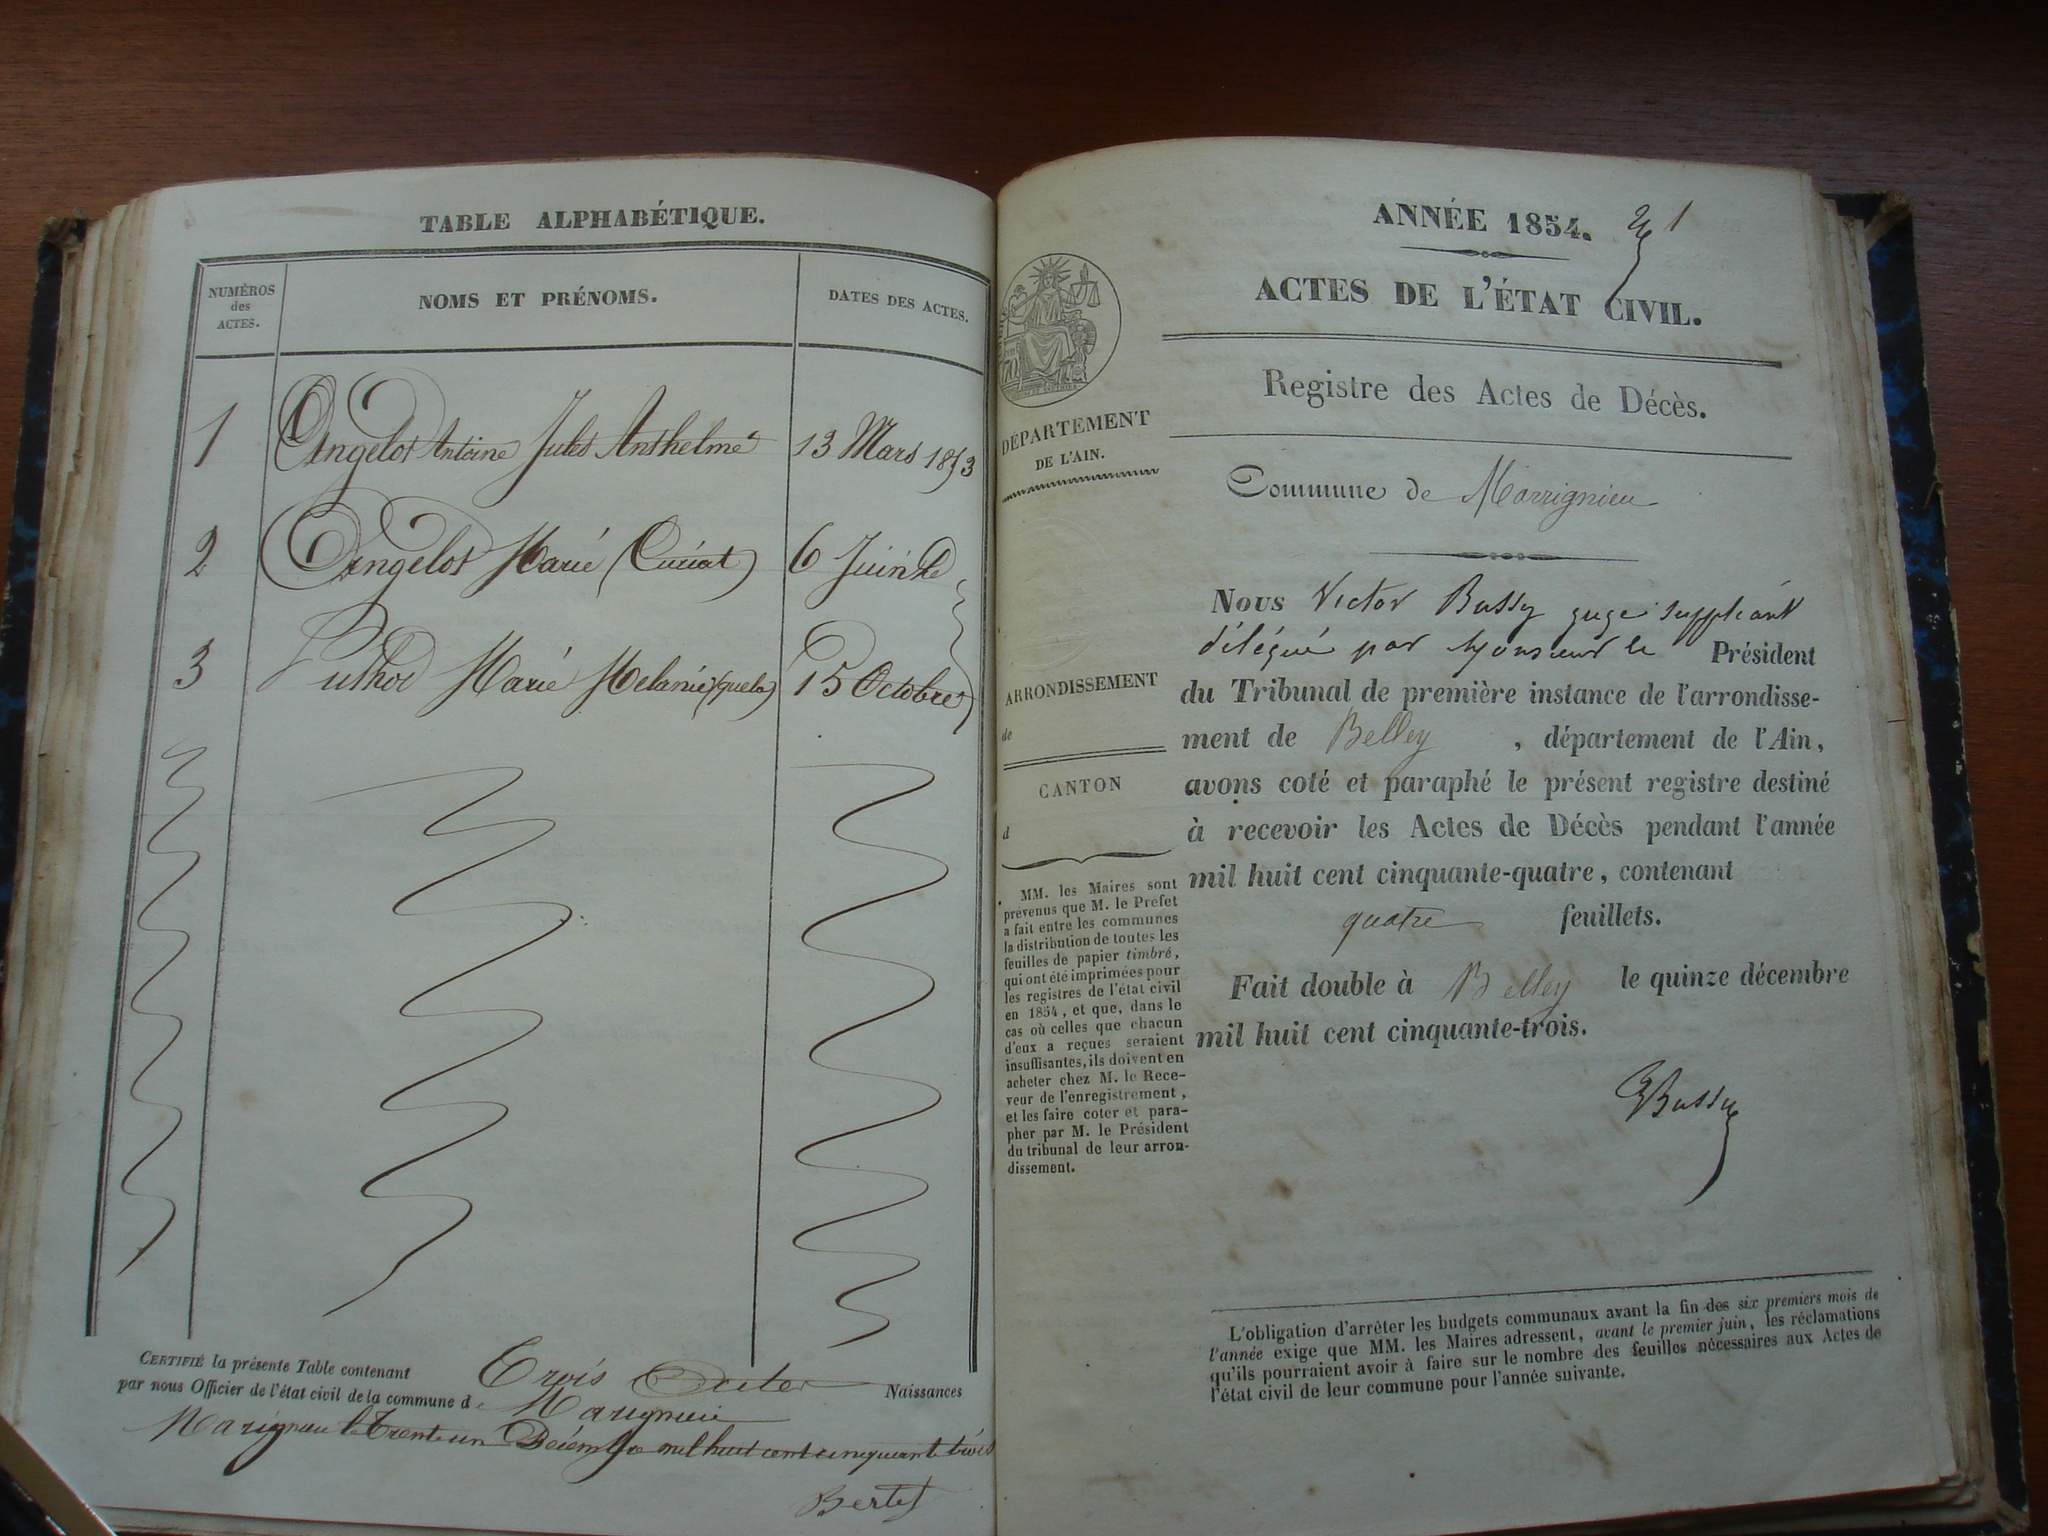 TABLE ALPHABÉTIQUE.
NUMÉROS
des
ACTES.
NOMS ET PRÉNOMS.
DATES DES ACTES.
1 Angelot Antoine Jules Anthelme 13 Mars 1853
2 Angelot Marie (Curiat) 6 Juin
3 Puthod Marie Melanie 15 Octobre
CERTIFIÉ la présente Table contenant Trois Actes Naissances
par nous Officier de l'état civil de la commune de Marignieu
Marignieu le trente un Décembre mil huit cent cinquante trois
Bertet
ANNÉE 1854. 1
ACTES DE L'ÉTAT CIVIL.
Registre des Actes de Décès.
DÉPARTEMENT
DE L'AIN.
Commune de Marrignieu
ARRONDISSEMENT
de
CANTON
d
Nous Victor Bussy juge suppléant
délégué par Monsieur le Président
du Tribunal de première instance de l'arrondisse-
ment de Belley, département de l'Ain,
avons coté et paraphé le présent registre destiné
à recevoir les Actes de Décès pendant l'année
mil huit cent cinquante-quatre, contenant
quatre feuillets.
Fait double à Belley le quinze décembre
mil huit cent cinquante-trois.
Bussy
MM. les Maires sont
prévenus que M. le Préfet
a fait entre les communes
la distribution de toutes les
feuilles de papier timbré,
qui ont été imprimées pour
les registres de l'état civil
en 1854, et que, dans le
cas où celles que chacun
d'eux a reçues seraient
insuffisantes, ils doivent en
acheter chez M. le Rece-
veur de l'enregistrement,
et les faire coter et para-
pher par M. le Président
du tribunal de leur arron-
dissement.
L'obligation d'arrêter les budgets communaux avant la fin des six premiers mois de
l'année exige que MM. les Maires adressent, avant le premier juin, les réclamations
qu'ils pourraient avoir à faire sur le nombre des feuilles nécessaires aux Actes de
l'état civil de leur commune pour l'année suivante.